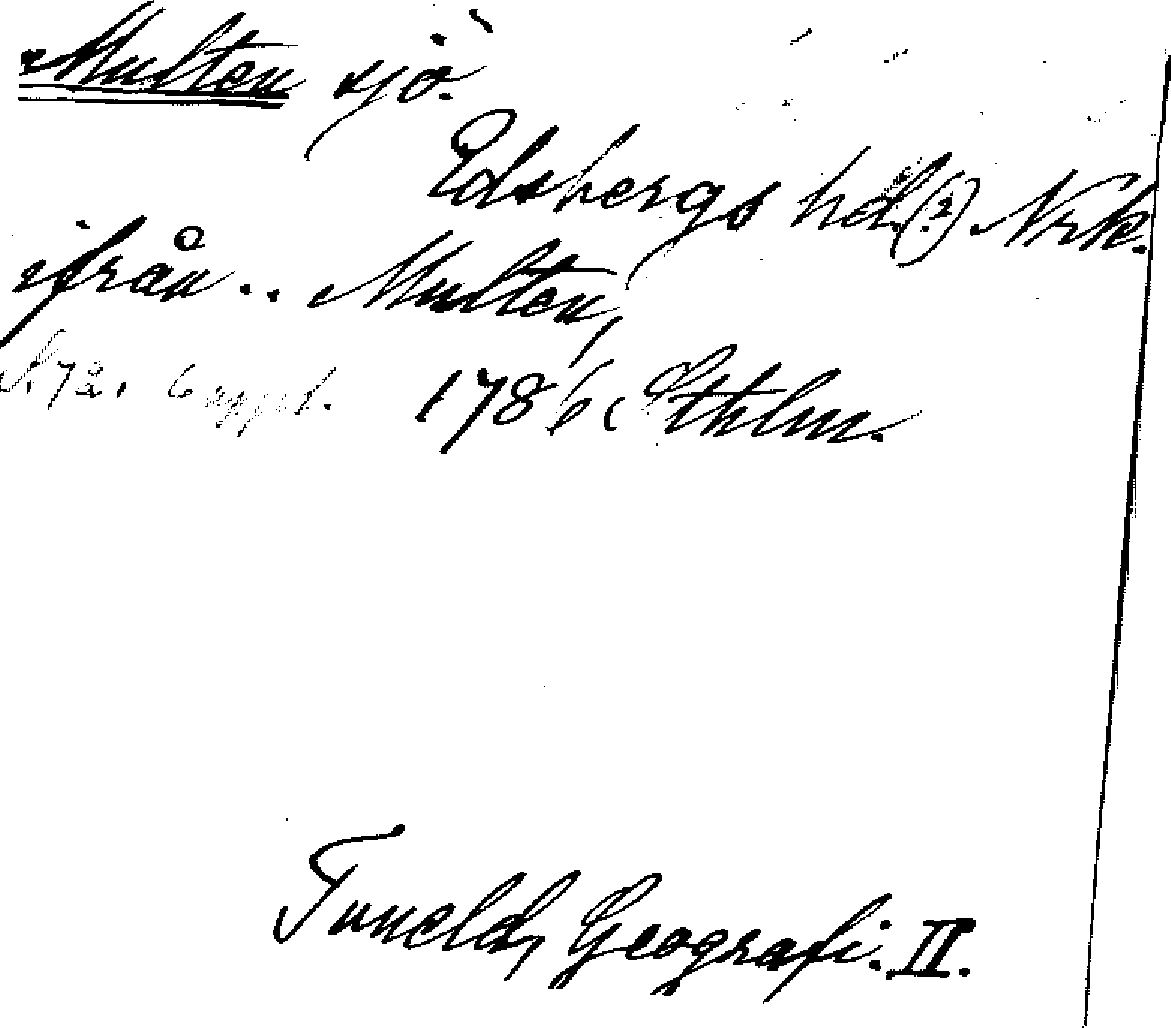 Multen sjö.
Edsbergs hd.(?) Nrk.
ifrån .. Multen,
S. 72. 6 uppl. 1786, Sthlm.
Tuneld, Geografi. II.